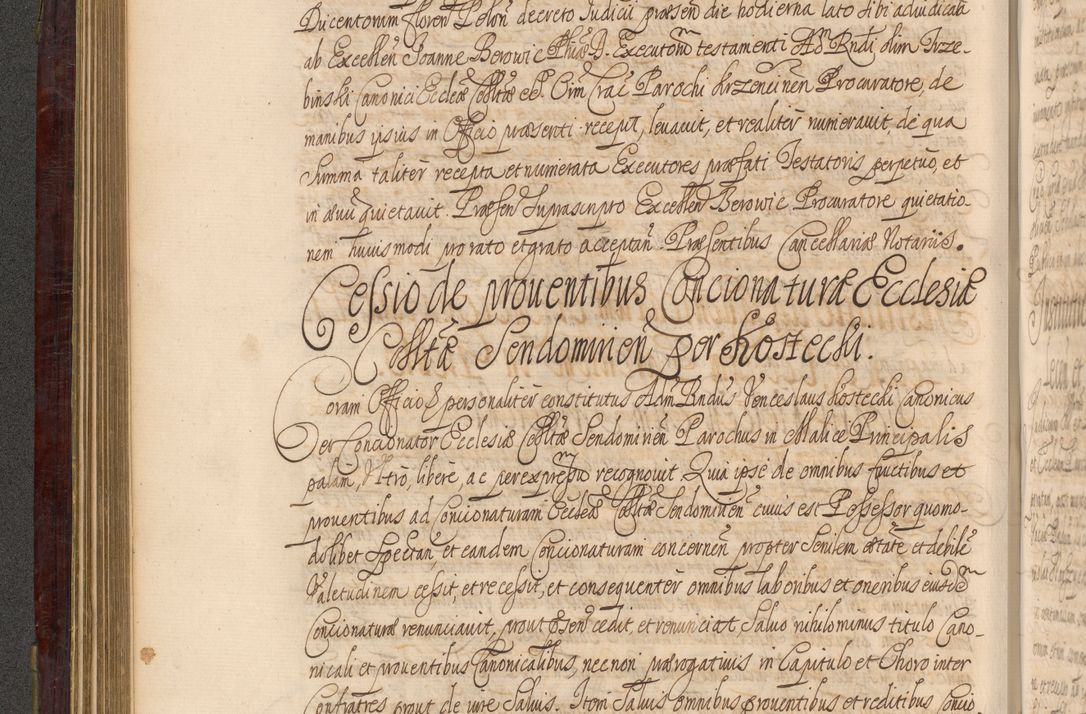 Ducentorum floren Polon decreto Judicii præsen die hodierna lato sibi adiudicata
ab Excellen Joanne Berowic Phiæ D. Executorm testamenti Adm Rndi olim Trze-
binski Canonici Ecclæ Colltæ OO. Omn Crac Parochi Krzeninen Procuratore, de
manibus ipsius in Officio præsenti recepit, levavit, et realiter numeravit, de qua
Summa taliter recepta et numerata Executores præfati Testatoris perpetuo, et
in ævu quietavit. Præsen Suprascripto Excellen Berowic Procuratore quietatio-
nem huiusmodi pro rato et grato acceptan. Præsentibus Cancellariæ Notariis.
Cessio de proventibus Concionaturæ Ecclesiæ
Colltæ Sendomirien per Kostecki.
Coram Officio & personaliter constitutus Adm Rndus Venceslaus Kostecki Canonicus
Der Concionator Ecclesiæ Colltæ Sendomirien Parochus in Malice Principalis
palam, Ultro, libere, ac per expressum recognovit. Quia ipse de omnibus fructibus et
proventibus ad Concionaturam Eccleæ Colltæ Sendomirien cuius est Possessor quomo-
dolibet Spectan, et eandem Concionaturam concernen propter Senilem ætate et debile
Valetudinem cessit, et recessit, et consequenter omnibus laboribus et oneribus eiusdem
Concionaturæ renunciavit, prout Præsen cedit, et renunciat Salvo nihilominus titulo Cano-
nicali et proventibus Canonicalibus, nec non prærogativis in Capitulo et Choro inter
Confratres prout de iure Salvis. Item Salvis omnibus proventibus et reditibus Concio-